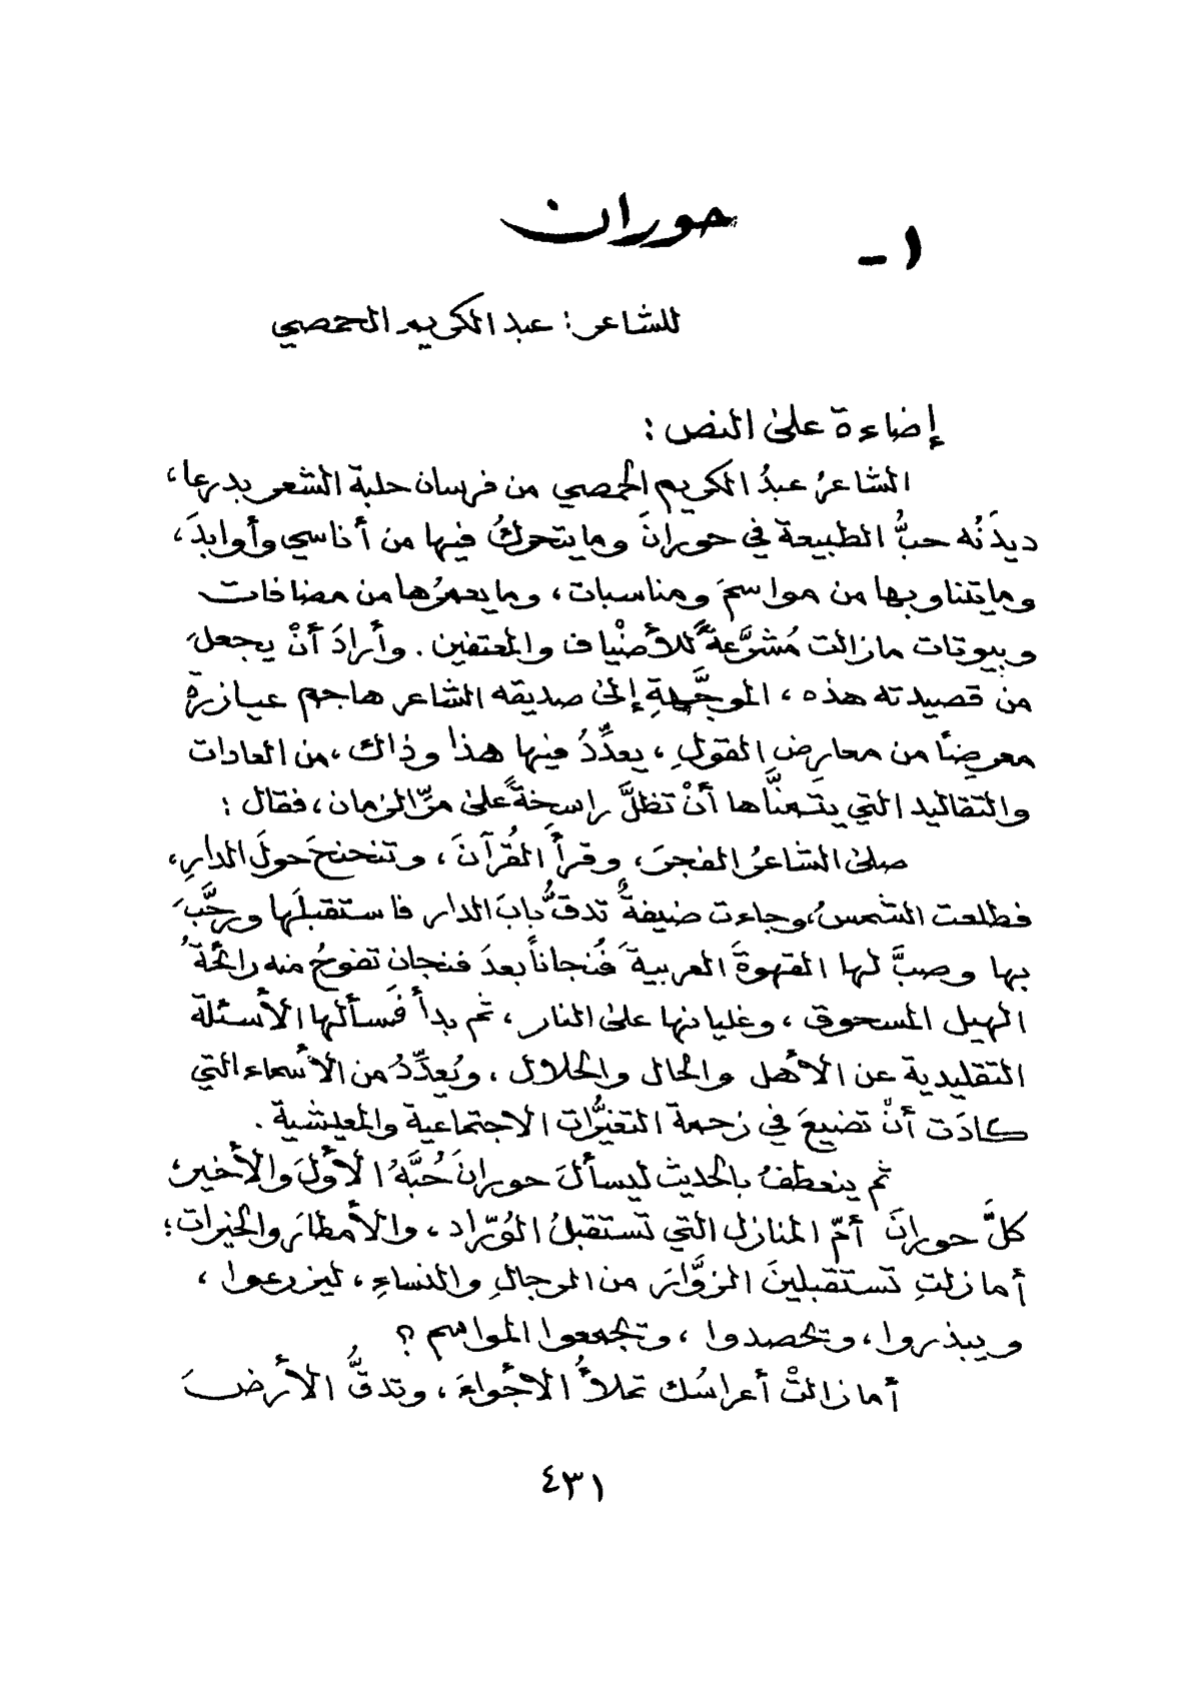 ١- حوران
للشاعر: عبد الكريم الحمصي
إضاءة على النص:
الشاعرُ عبدُ الكريم الحمصي من فرسان حلبة الشعر بدرعا،
ديدَنُه حبُّ الطبيعة في حورانَ وما يتحركُ فيها من أناسي وأوابدَ،
وما يتناوبها من مواسمَ ومناسبات، وما يعمرُها من مضافات
وبيوتات مازالت مُشرَّعةً للأضْياف والمعتفين. وأرادَ أنْ يجعلَ
من قصيدته هذه، الموجَّهةِ إلى صديقه الشاعر هاجم عيازرة
معرِضًا من معارِض القولِ، يعدِّدُ فيها هذا وذاك، من العادات
والتقاليد التي يتَمنَّاها أنْ تظلَّ راسِخةً على مرِّ الزمان، فقال:
صلى الشاعرُ الفجرَ، وقرأَ القُرآنَ، وتنحنحَ حولَ الدارِ،
فطلعت الشمسُ، وجاءت ضيفةٌ تدقُّ بابَ الدار فاستقبلَها ورحَّبَ
بها وصبَّ لها القهوةَ العربيةَ فُنجاناً بعدَ فنجانٍ تفوحُ منه رائحةُ
الهيل المسحوق، وغليانها على النار، ثم بدأ فسألها الأسئلة
التقليدية عن الأهل والحال والحلال، ويُعدِّدُ من الأسماء التي
كادَت أنْ تضيعَ في زحمة التغيُّرات الاجتماعية والمعيشية.
ثم ينعطفُ بالحديث ليسألَ حورانَ حُبَّهُ الأولَ والأخير،
كلَّ حورانَ أمّ المنازل التي تستقبلُ الوُرّاد، والأمطارَ والخيرات؛
أما زلتِ تستقبلينَ الزوَّارَ من الرجالِ والنساءِ، ليزرعوا،
ويبذروا، وتحصدوا، وتجمعوا المواسم؟
أما زالتْ أعراسُك تملأُ الأجواءَ، وتدقُّ الأرضَ
٤٣١